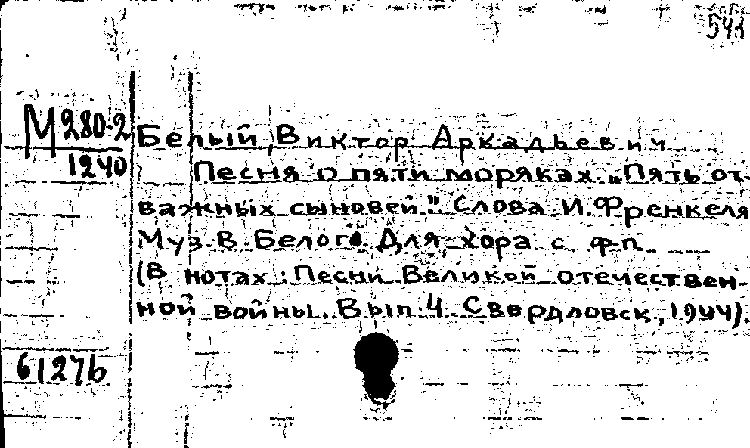 541
М280-2
1240
Белый, Виктор Аркадьевич
Песня о пяти моряках. „Пять от-
важных сыновей." Слова И. Френкеля
Муз. В. Белого. Для хора с ф.п.
(В нотах: Песни Великой отечествен-
ной войны. Вып. 4. Свердловск, 1944).
6127b